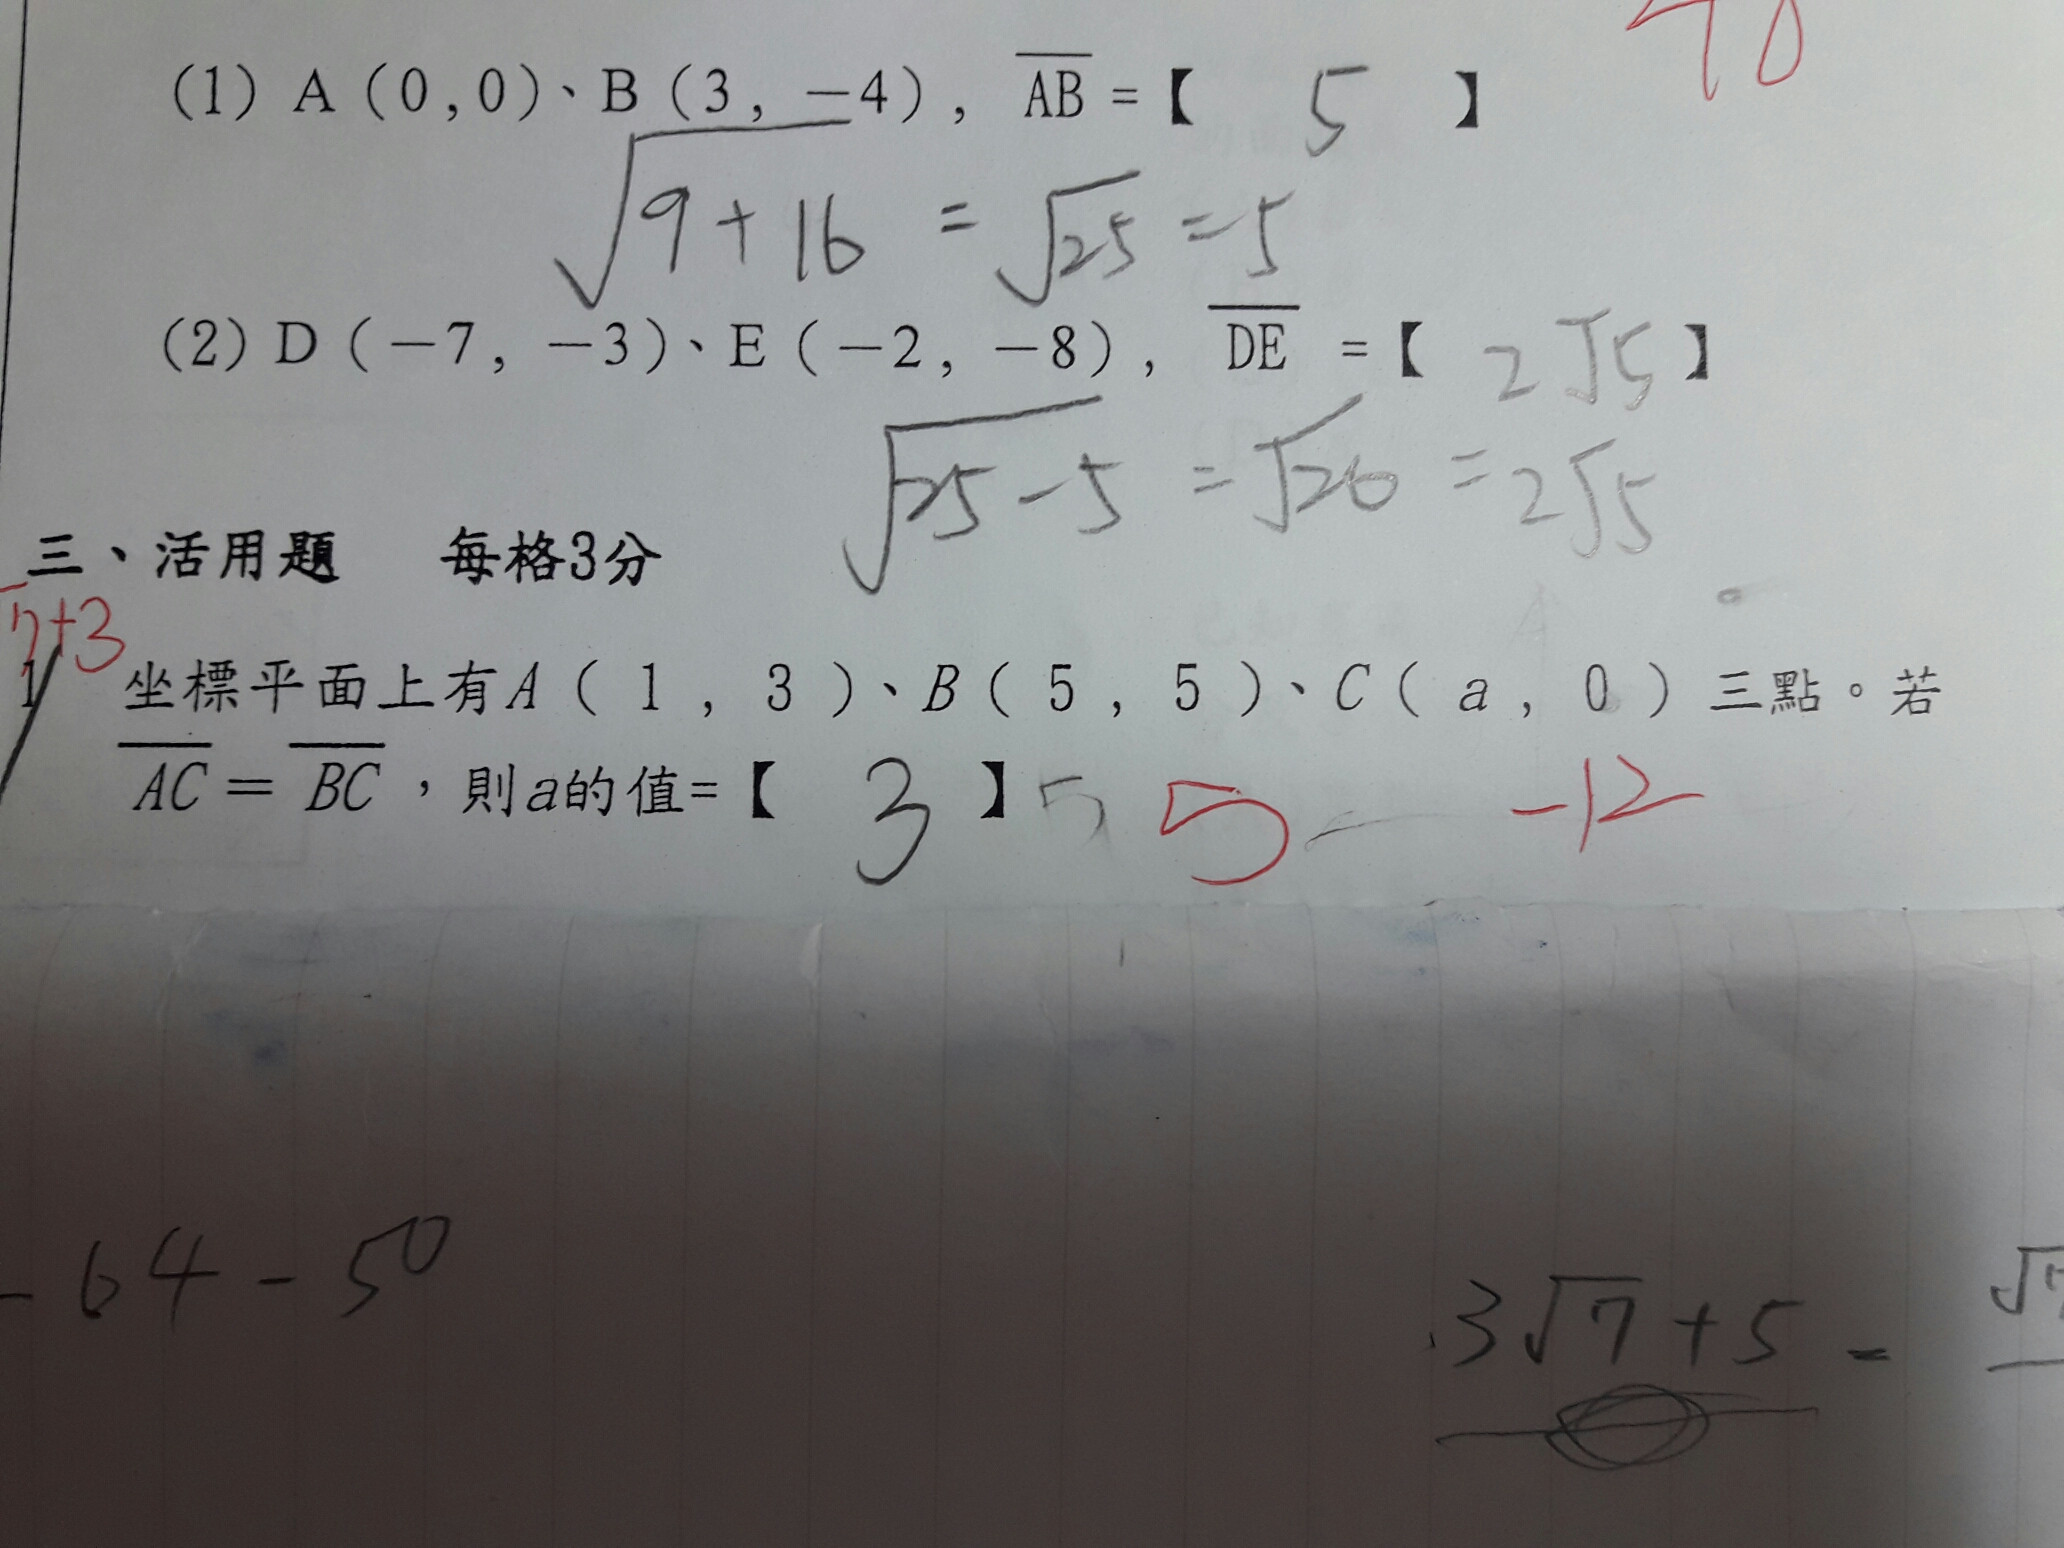 (1) A (0,0)、B (3, −4), AB =【 5 】
√9+16 = √25 = 5
(2) D (−7, −3)、E (−2, −8), DE =【 2√5 】
√25-5 = √20 = 2√5
三、活用題 每格3分
7+3
1 坐標平面上有A ( 1 , 3 )、B ( 5 , 5 )、C ( a , 0 ) 三點。若
AC = BC ,則a的值=【 3 】 5 5 -12
- 64 - 50
3√7 + 5 =